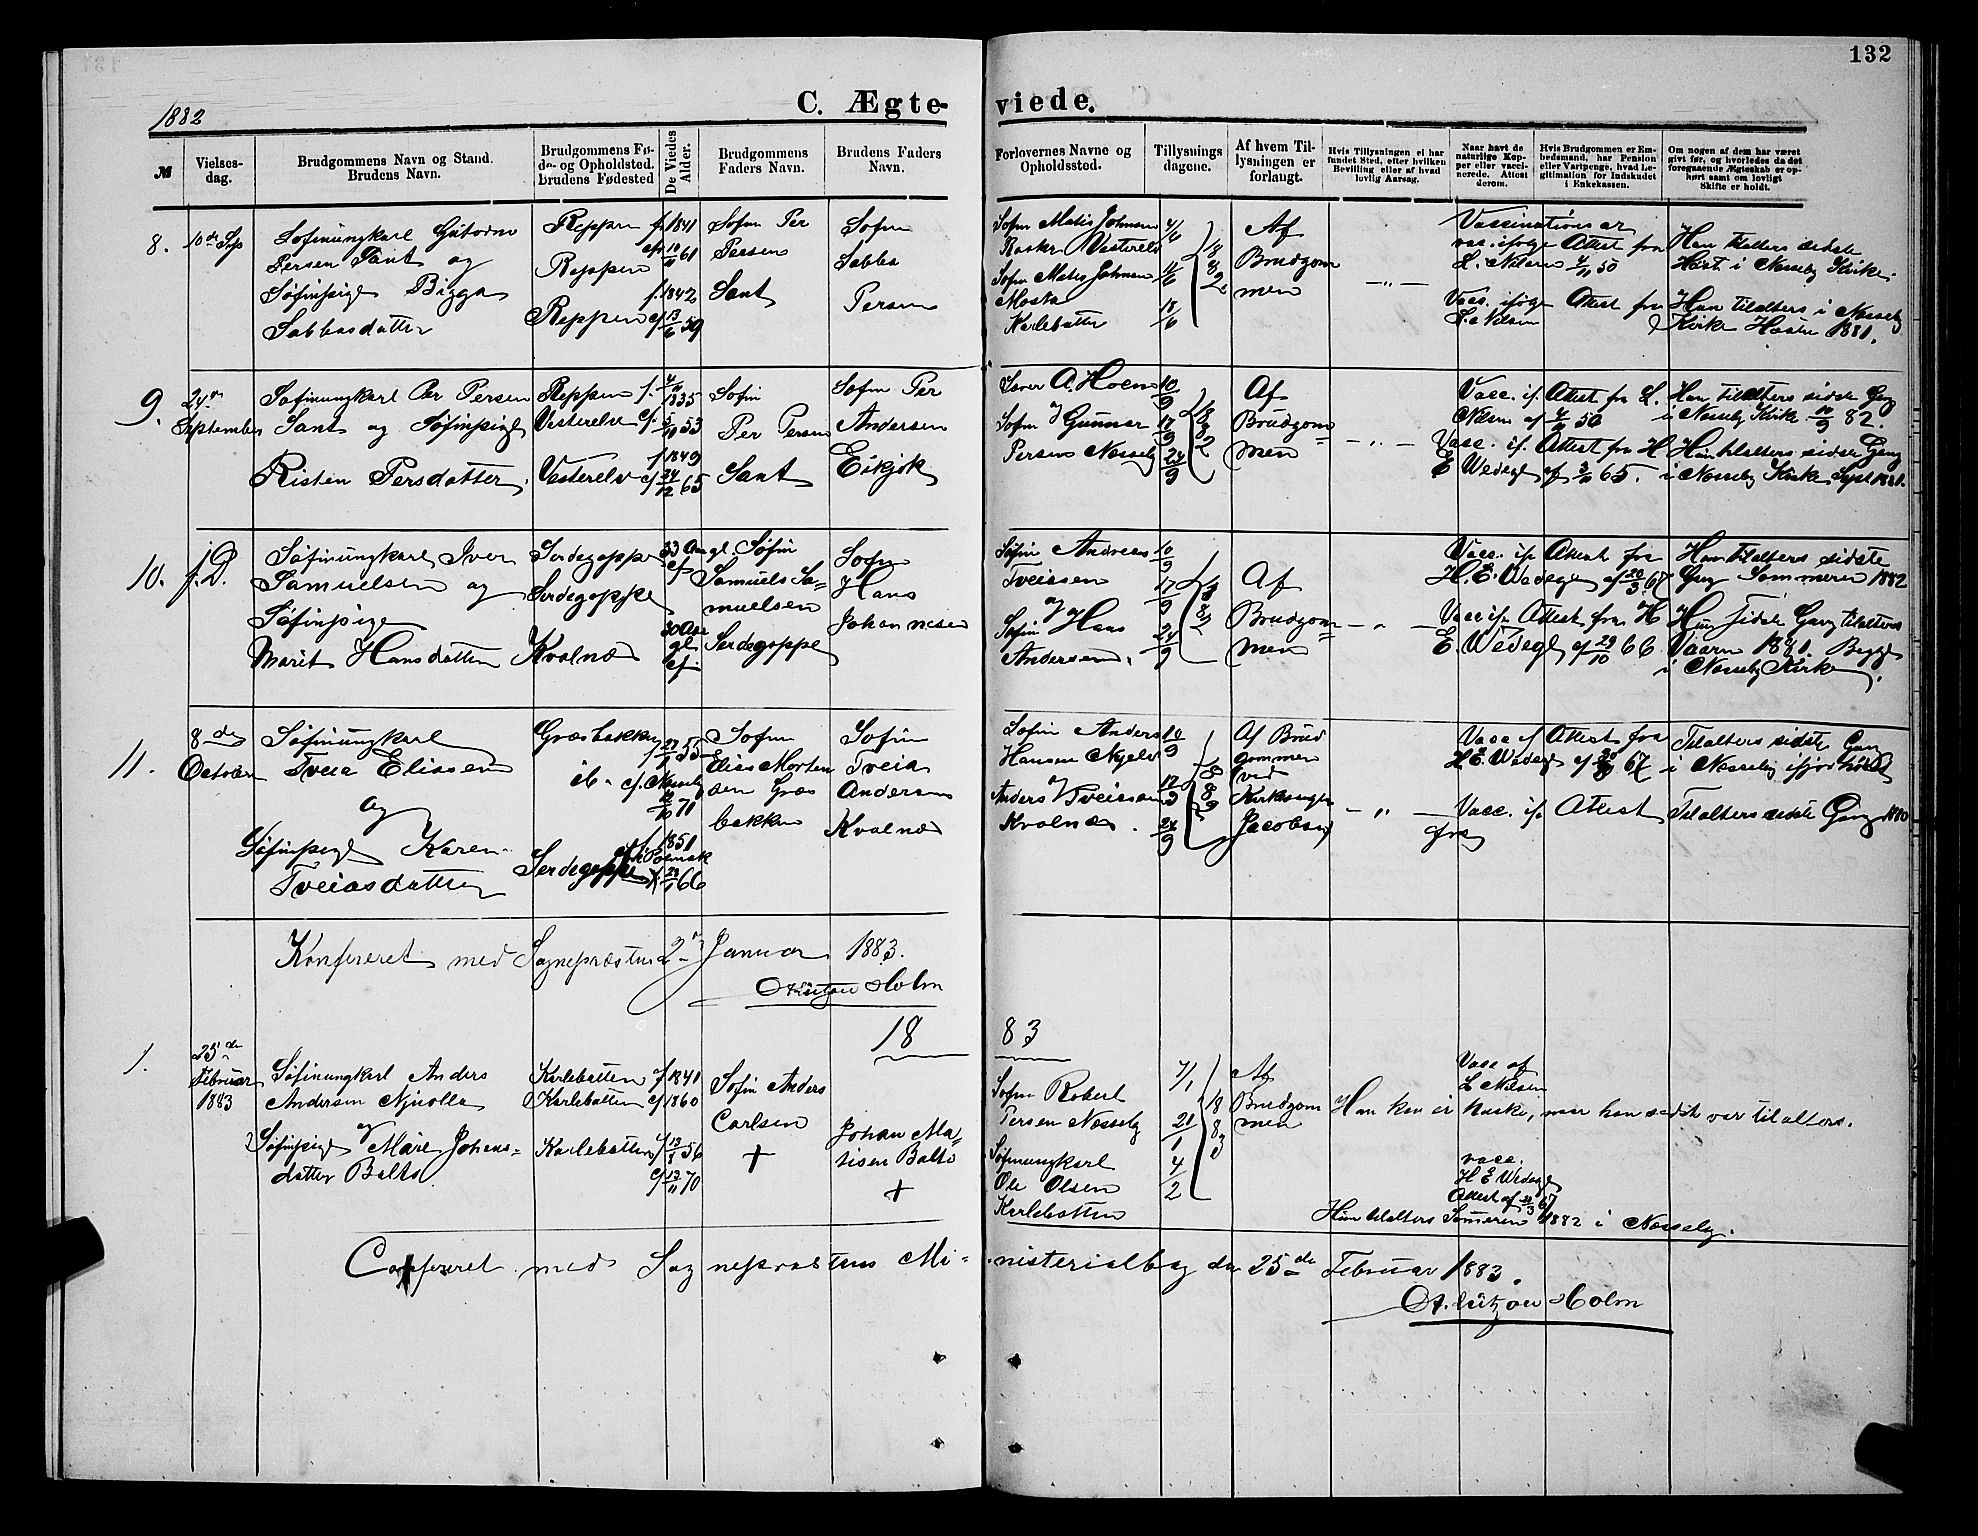 132
1882
C. Ægte-
viede.
№
Vielses-
dag.
Brudgommens Navn og Stand.
Brudens Navn.
Brudgommens Fø-
de- og Opholdsted.
Brudens Fødested
De Viedes
Alder.
Brudgommens
Faders Navn.
Brudens Faders
Navn.
Forlovernes Navne og
Opholdssted.
Tillysnings
dagene.
Af hvem Til-
lysningen er
forlangt.
Hvis Tillysningen ei har
fundet Sted, efter hvilken
Bevilling eller af hvad
lovlig Aarsag.
Naar havt de
naturlige Kop-
per eller vacci-
nerede. Attest
derom.
Hvis Brudgommen er Em-
bedsmand, har Pension
eller Vartpenge, hvad Le-
gitimation for Indskudet
i Enkekassen.
Om nogen af dem har været
givt før, og hvorledes da det
foregaaende Ægteskab er op-
hørt samt om lovligt
Skifte er holdt.
8.
10de Sep
Søfinungkarl
Persen Sant og
Søfinpige Bigga
Sabbasdatter
Reppen
Reppen
Reppen
f. 1841
c. 10/11 61
f. 1842
cf 13/6 59
Søfin Per
Persen
Sant
Søfin
Sabba
Persen
Søfin Matis Johnsen
Vesterelv
Søfin Matis Johnsen
Karlebotten
4/6
11/6
18/6
1882
Af
Brudgom
men
— „ —
Vaccinationer
vac. ifølge Attest fra
L. Nilsen 4/11 50
Vacc. ifølge Attest fra
L. Nilsen
Han tilalters sidste
Høst i Næsseby Kirke.
Hun tilalters i Næsseby
Kirke Høsten 1881.
9.
24de
September
Søfinungkarl Per Persen
Sant og Søfinpige
Risten Persdatter.
Reppen
Vesterelv
Vesterelv
f. 4/11 1835
cf. 5/10 53
f 1849
cf 24/12 65
Søfin
Per Persen
Sant
Søfin Per
Andersen
Eikjok
Iver A. Hoem
og
Søfin Gunnar
Persen Næsseby
10/9
17/9
24/9
1882
Af
Brudgom=
men
— „ —
Vacc. if. Attest fra L.
Nilsen af 4/11 50
Vacc. if. Attest fra H
E Wedege af 3/11 65.
Han tilalters sidste Gang
i Næsseby Kirke 10/9 82.
Hun tilalters sidste Gang
i Næsseby Kirke Sept 1881.
10.
f. D.
Søfinungkarl Iver
Samuelsen og
Søfinpige
Marit Hansdatter
Serdegoppe
Serdegoppe
Kvalnæs
33 Aar gl.
cf
30 Aar
gl
cf.
Søfin
Samuels Sa=
muelsen
Serdegoppe
Søfin
Hans
Johannesen
Søfin Andreas
Tveiesen
og
Søfin Hans
Andersen.
10/9
17/9
24/9
1882
Af
Brudgom=
men
— „ —
Vacc. if. Attest fra
H. E. Wedege af 20/3 67
Vacc if. Attest fra H
E. Wedege af 29/10 66
Han tilalters sidste
Gang Sommeren 1882
Hun sidste Gang tilalters
Vaaren 1881. Begge
i Næsseby Kirke.
11.
8de
October
Søfinungkarl
Tveia Eliassen
og
Søfinpige Karen
Tveiasdatter
Græsbakken
ib.
Serdegoppe
f 27/1 55
cf. Næsseby
10/10 71
f. 1851
cf i Polmak
29/1 66
Søfin
Elias Morten
sen Græs
bakken
Søfin
Tveia
Andersen
Kvalnæs
Søfin Anders
Hansen Nyelv
og
Anders Tveiasen
Kvalnæs.
10/9
17/9
24/9
1882
Af Brud
gommen
ved
Kirkesanger
Jacobsen
— „ —
Vacc if Attest fra
H. E. Wedege af 67
Vacc. if. Attest
fra
Tilalters sidste Gang
i Næsseby ifjor høst
Tilalters sidste Gang 1880
Konfereret med Sognepræstens 2den Januar 1883.
O. Lützow Holm
18
83
1.
25de
Februar
1883
Søfinungkarl Anders
Andersen Njuolla
og
Søfinpige Mare Johans=
datter Balto
Karlebotten
Karlebotten
Karlebotten
f 1841
cf 1860
f 13/3 56
cf 13/11 70
Søfin Anders
Carlsen
+
Johan Ma=
tisen Balto
+
Søfin Robert
Persen Næsseby
Søfinungkarl
Ole Olsen
Karlebotten
7/1
21/1
4/2
1883
Af
Brudgom
men
Vacc af
L Nilsen
Han kan ei huske, naar han sidst var tilalters.
vacc.
H E Wedege
Attest af 20/3 67
Hun tilalters Sommeren 1882 i Næsseby.
Confereret med Sognepræstens Mi-
nisterialbog den 25de Februar 1883.
O. Lützow Holm